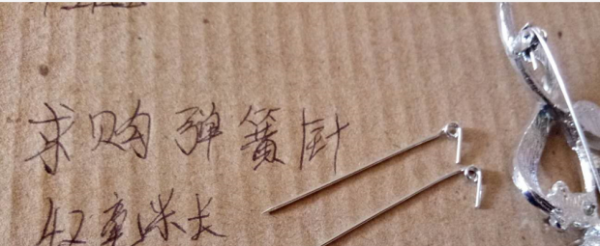 求购弹簧针
42毫米长